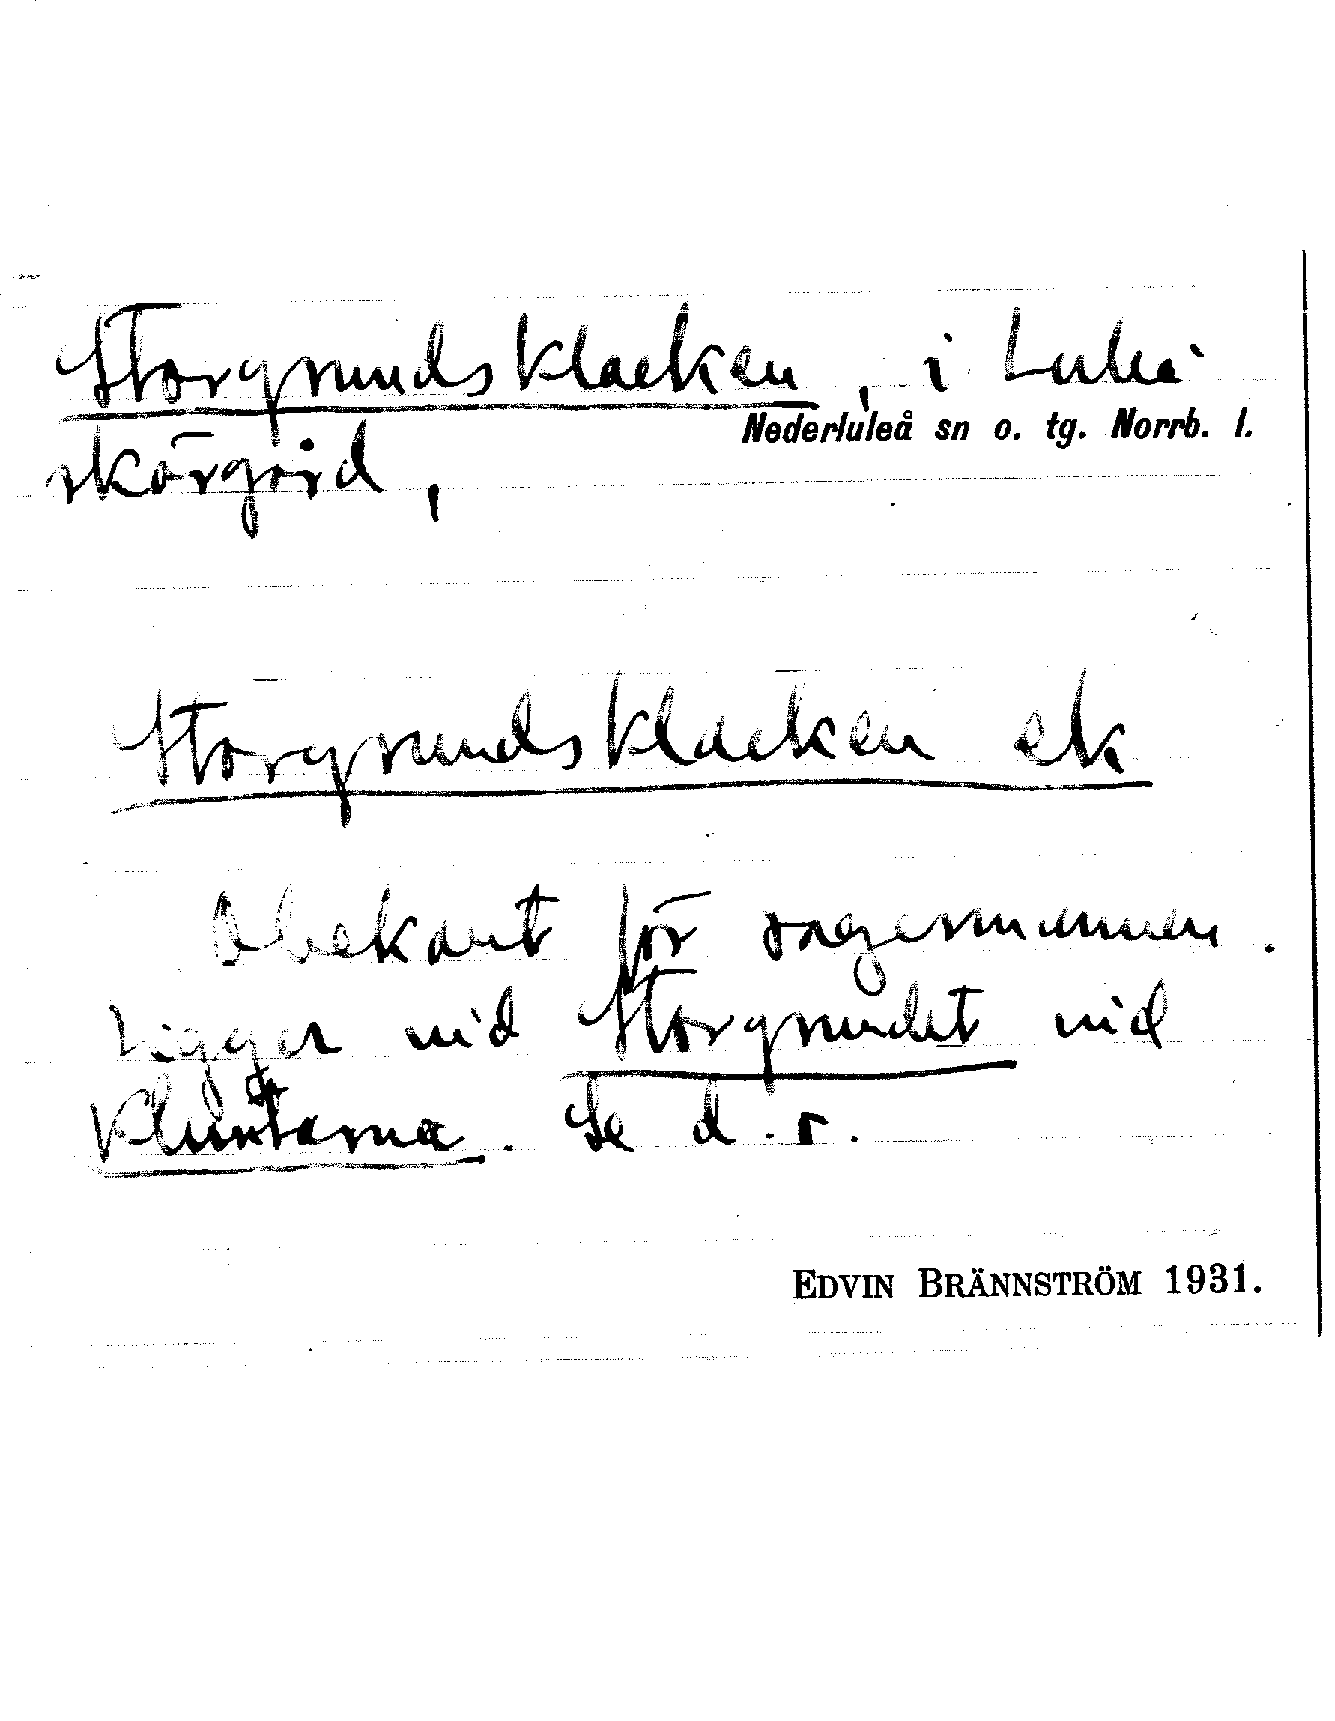 Storgrundsklacken, i Luleå
Nederluleå sn o. tg. Norrb. l.
skärgård,
Storgrundsklacken ek
Obekant för sagesmannen.
Ligger vid Storgrundet vid
Kluntarna. Se d. o.
EDVIN BRÄNNSTRÖM 1931.